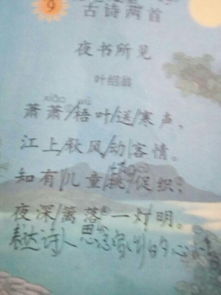 9
古诗两首
夜书所见
叶绍翁
萧萧梧叶送寒声，
江上秋风动客情。
知有儿童挑促织，
夜深篱落一灯明。
表达诗人思念家乡的心